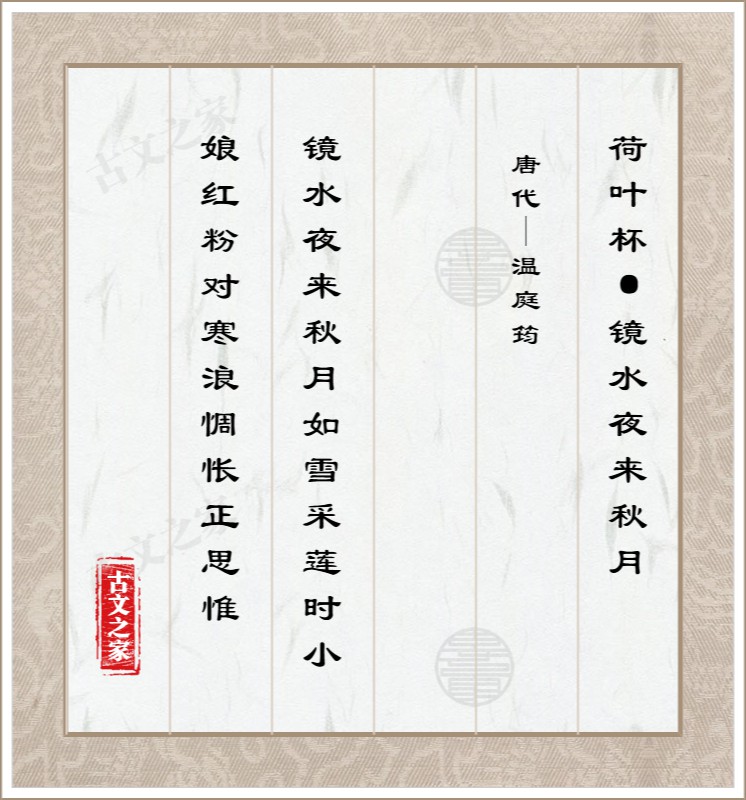 荷叶杯●镜水夜来秋月
唐代—温庭筠
镜水夜来秋月如雪采莲时小
娘红粉对寒浪惆怅正思惟
古文之家
古文之家
文之家